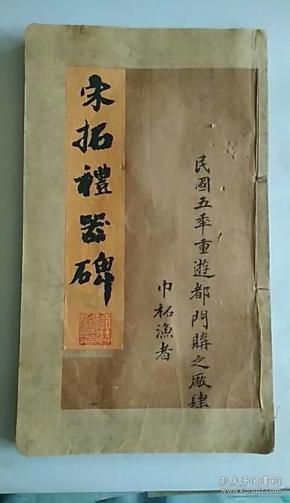 宋拓禮器碑
民國五年重遊都門購之厰肆
巾柘漁者